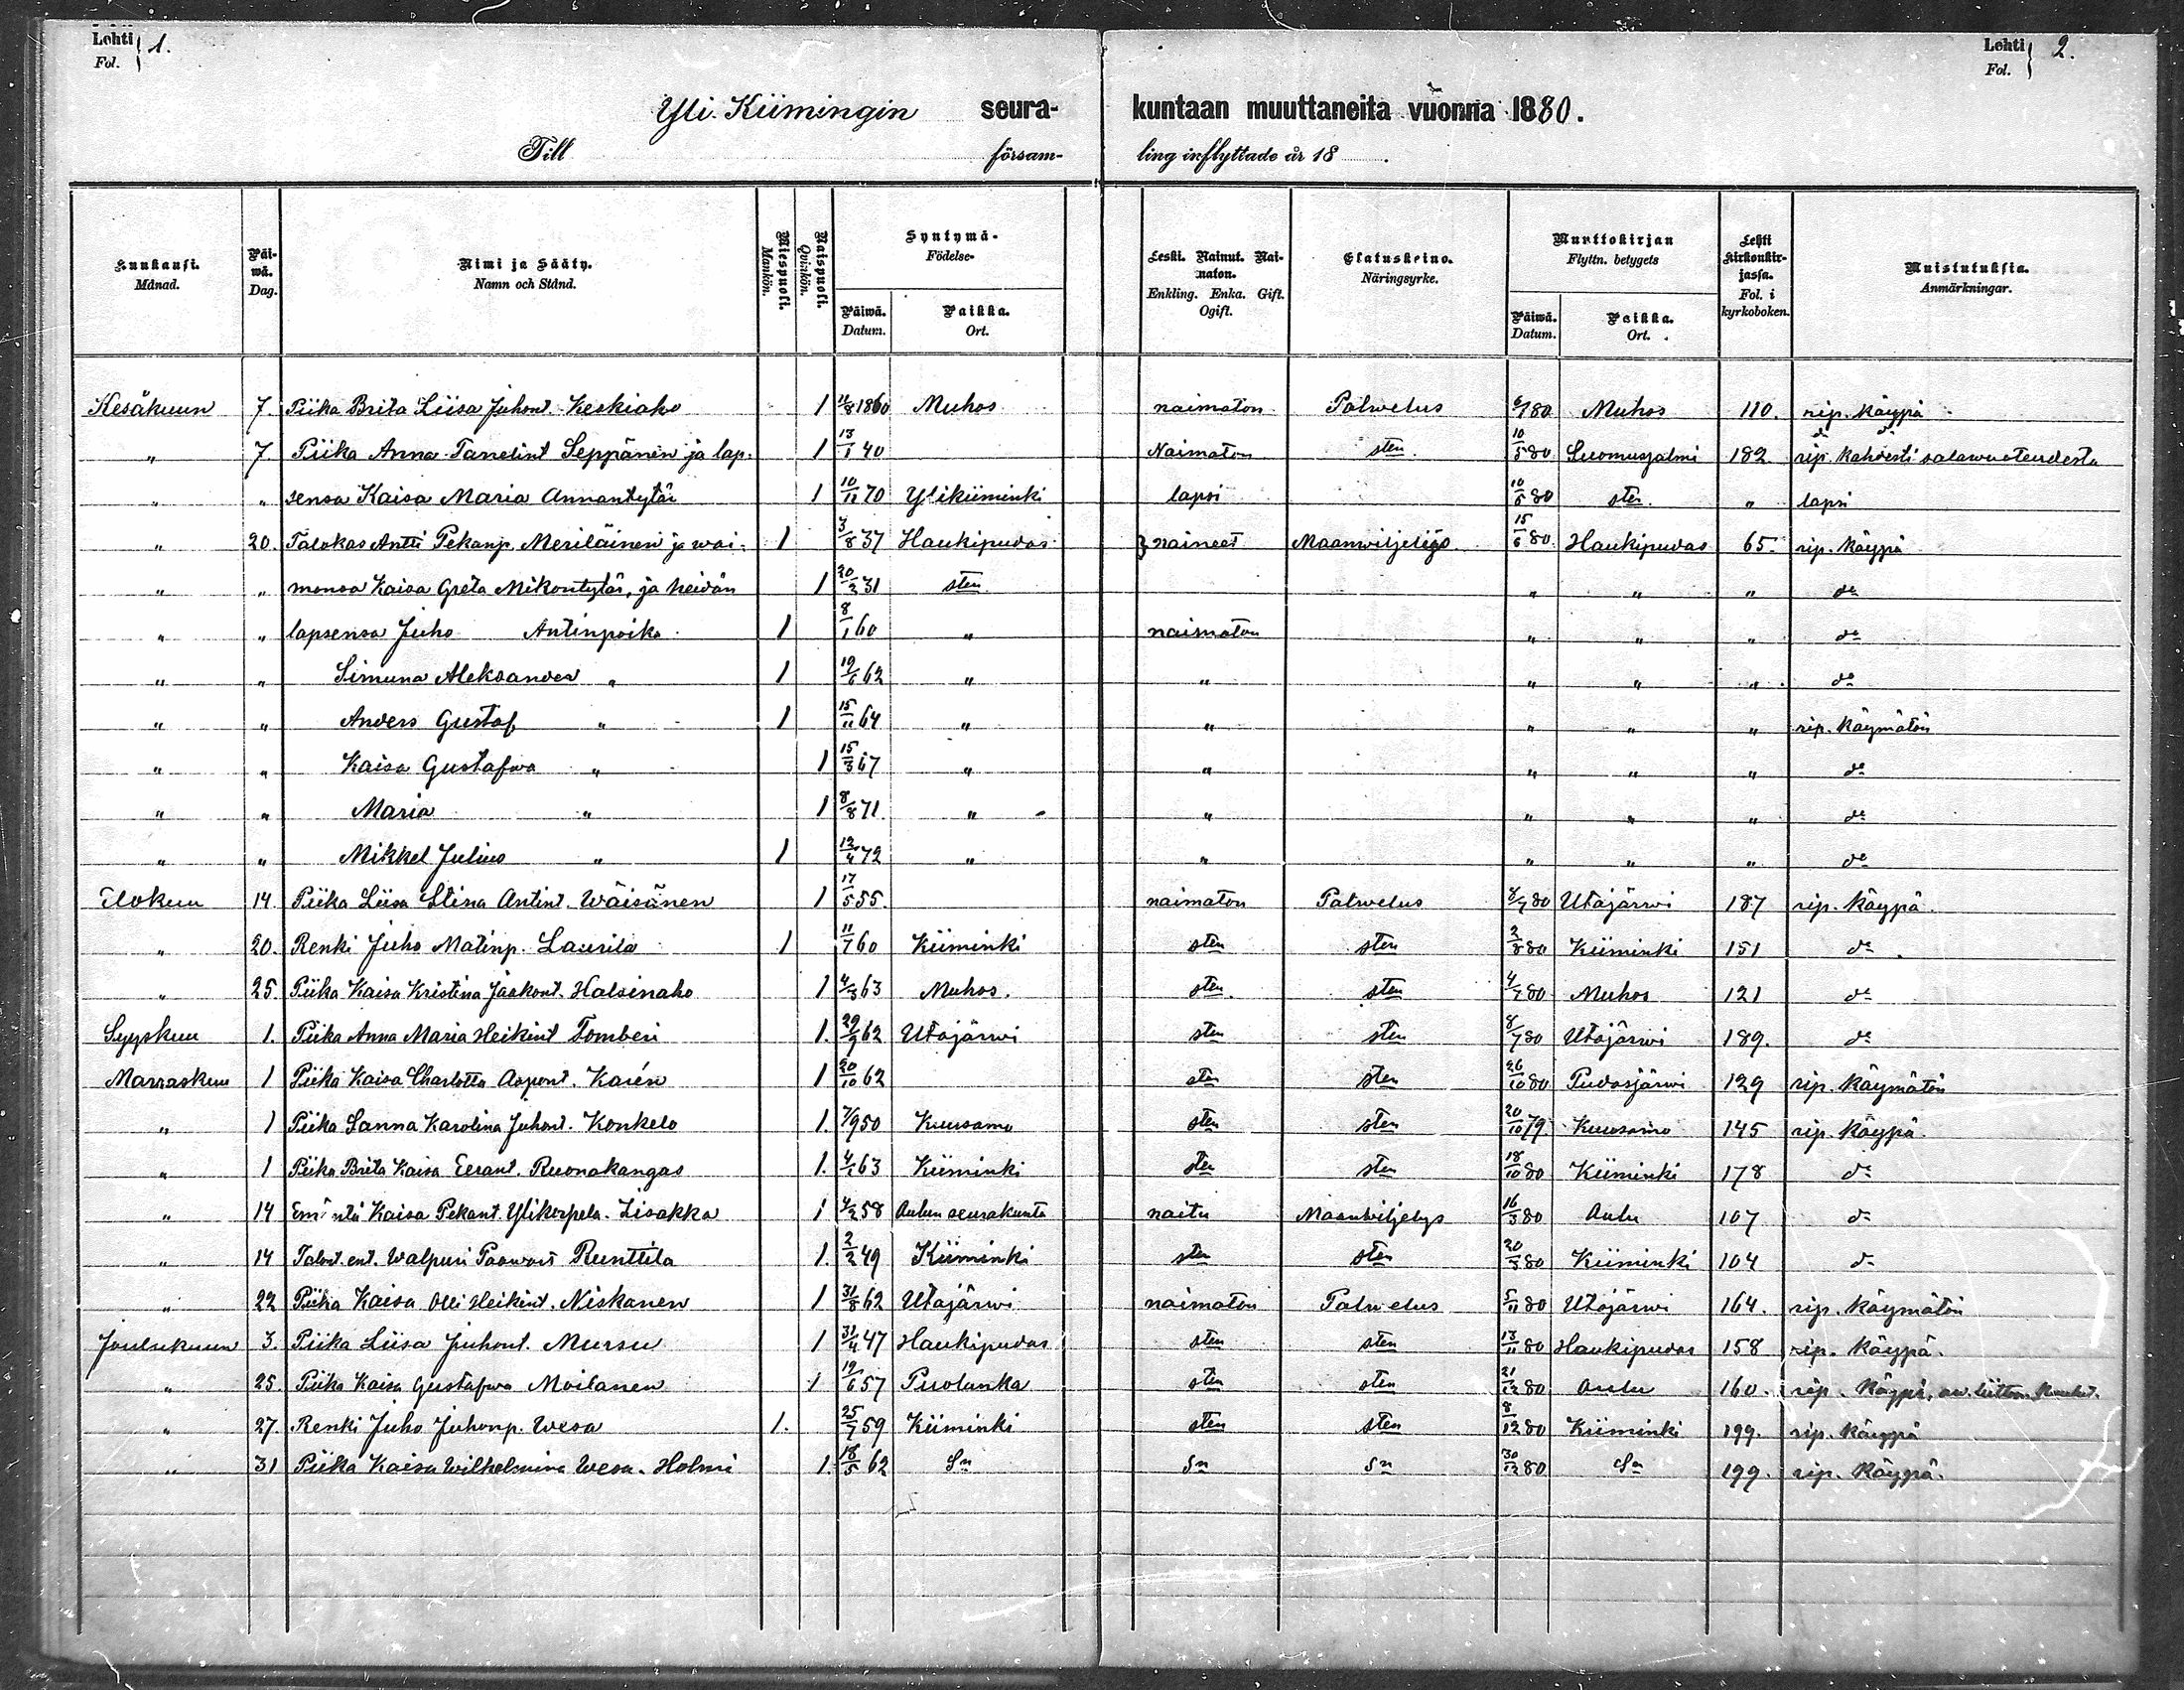 Lehti 1.
Fol.
Lehti 2.
Fol.
Yli-Kiimingin seura- kuntaan muuttaneita vuonna 1880.
Till försam- ling inflyttade år 18 .
Kuukausi. Månad. Päi-wä. Dag. Nimi ja Sääty. Namn och Stånd. Miespuoli. Mankön. Naispuoli. Qvinkön. Syntymä- Födelse- Päiwä. Datum. Paikka. Ort. Leski. Nainut. Nai-maton. Enkling. Enka. Gift. Ogift. Elatuskeino. Näringsyrke. Muuttokirjan Flyttn. betygets Päiwä. Datum. Paikka. Ort. Lehti Kirkonkir-jassa. Fol. i kyrkoboken. Muistutuksia. Anmärkningar.
Kesäkuun 7. Piika Brita Liisa Juhont. Keskiaho 1 11/8 1860 Muhos naimaton Palwelus 6/1 80 Muhos 110. rip. käypä
" 7. Piika Anna Tanelint Seppänen ja lap- 1 13/1 40 Naimaton sten 10/5 80 Suomusjalmi 182. rip. kahdesti salawuoteudesta
" " sensa Kaisa Maria Annantytär 1 10/11 70 Ylikiiminki lapsi 10/5 80 sten " lapsi
" 20. Talokas Antti Pekanp. Meriläinen ja wai- 1 3/8 37 Haukipudas } naineet Maanwiljelijä 15/6 80 Haukipudas 65. rip. käypä
" " monsa Kaisa Greta Mikontytär, ja heidän 1 20/2 31 sten " " " do
" " lapsensa Juho Antinpoika 1 8/1 60 " naimaton " " " do
" " Simuna Aleksander " 1 19/6 62 " " " " " do
" " Anders Gustaf " 1 15/11 64 " " " " " rip. käymätön
" " Kaisa Gustafwa " 1 15/3 67 " " " " " do
" " Maria " 1 8/8 71. " " " " " do
" " Mikkel Julius " 1 12/4 72 " " " " " do
Elokuu 14. Piika Liisa Stina Antint. Wäisänen 1 17/5 55. naimaton Palwelus 8/7 80 Utajärwi 187 rip. käypä.
" 20. Renki Juho Matinp. Laurila 1 11/7 60 Kiiminki sten sten 2/8 80 Kiiminki 151 do
" 25. Piika Kaisa Kristina Jaakont. Halsinaho 1 4/3 63 Muhos. sten sten 4/7 80 Muhos 121 do
Syyskuu 1. Piika Anna Maria Heikint Tomberi 1. 29/9 62 Utajärwi sten sten 8/7 80 Utajärwi 189. do
Marraskuu 1 Piika Kaisa Charlotta Aapont. Karén 1 20/10 62 sten sten 26/10 80 Pudasjärwi 129 rip. käymätön
" 1 Piika Sanna Karolina Juhont. Konkelo 1. 7/9 50 Kuusamo sten sten 20/10 79. Kuusamo 145 rip. käypä.
" 1 Piika Brita Kaisa Eerant. Ruonakangas 1. 4/1 63 Kiiminki sten sten 18/10 80 Kiiminki 178 do
" 14 Emäntä Kaisa Pekant. Ylikerpela. Lisakka 1 4/2 58 Oulun seurakunta naitu Maanwiljelys 16/3 80 Oulu 107 do
" 14 Talont. ent. Walpuri Paawont Runttila 1. 2/2 49 Kiiminki sten sten 20/3 80 Kiiminki 104 do
" 22 Piika Kaisa Olli Heikint. Niskanen 1 31/8 62 Utajärwi naimaton Palwelus 5/11 80 Utajärwi 164. rip. käymätön
Joulukuun 3. Piika Liisa Juhont. Mursu 1 31/4 47 Haukipudas sten sten 13/11 80 Haukipudas 158 rip. käypä.
" 25 Piika Kaisa Gustafwa Moilanen 1 19/6 57 Puolanka sten sten 21/12 80 Oulu 160. rip. käypä, aw. liittoon
" 27. Renki Juho Juhonp. Wesa 1. 25/7 59 Kiiminki sten sten 8/12 80 Kiiminki 199. rip. käypä
" 31 Piika Kaisa Wilhelmina Wesa. Holmi 1. 18/5 62 Sn Sn Sn 30/12 80 Sn 199. rip. käypä.